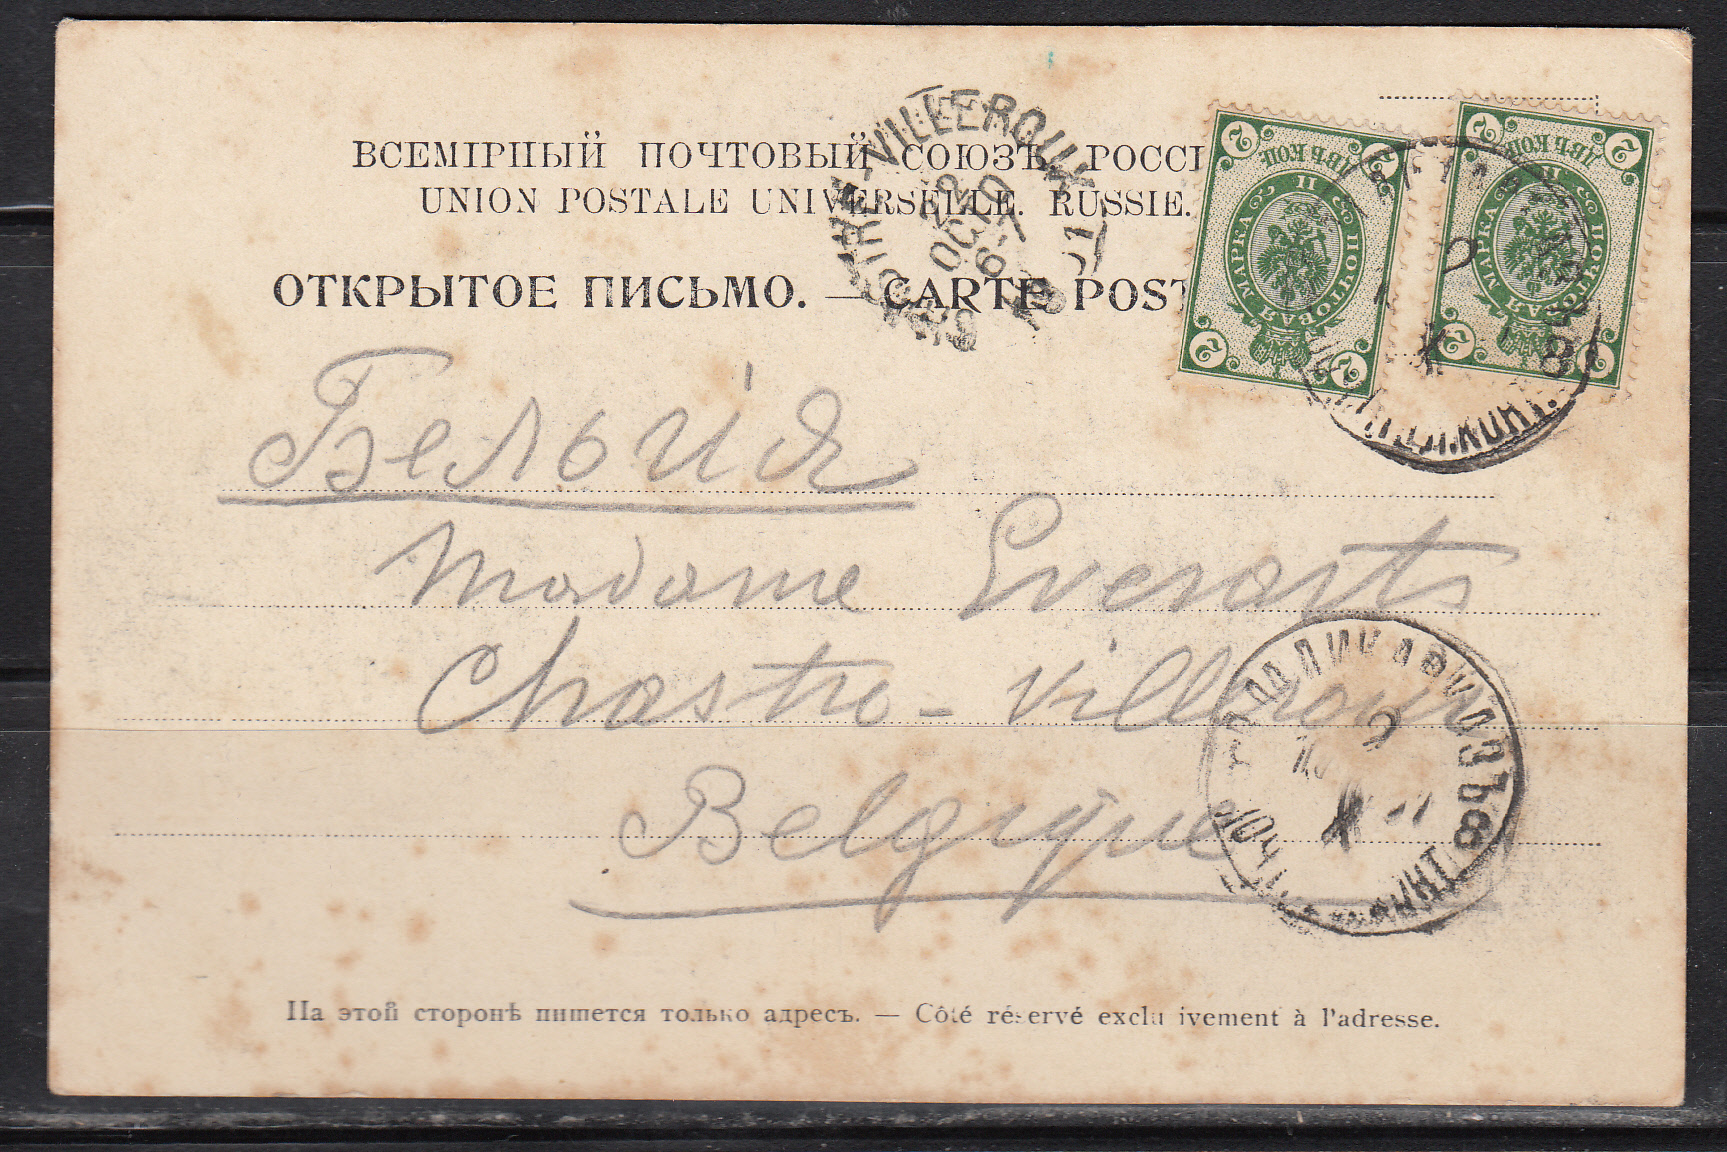 ВСЕМІРНЫЙ ПОЧТОВЫЙ СОЮЗЪ. РОССІ
UNION POSTALE UNIVERSELLE. RUSSIE.
ОТКРЫТОЕ ПИСЬМО. — CARTE POST
ПОЧТОВАЯ МАРКА
ДВѢ КОП.
2 2 2 2
ПОЧТОВАЯ МАРКА
ДВѢ КОП.
2 2 2 2
VILLEROUX
OCT
Бельгія
Madame Everarts
Chastre-Villeroux
Belgique
ВЛАДИКАВКАЗЪ
На этой сторонѣ пишется только адресъ. — Côté réservé exclu ivement à l'adresse.